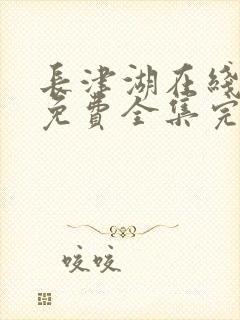 長津湖在綫
免費全集完
咬咬